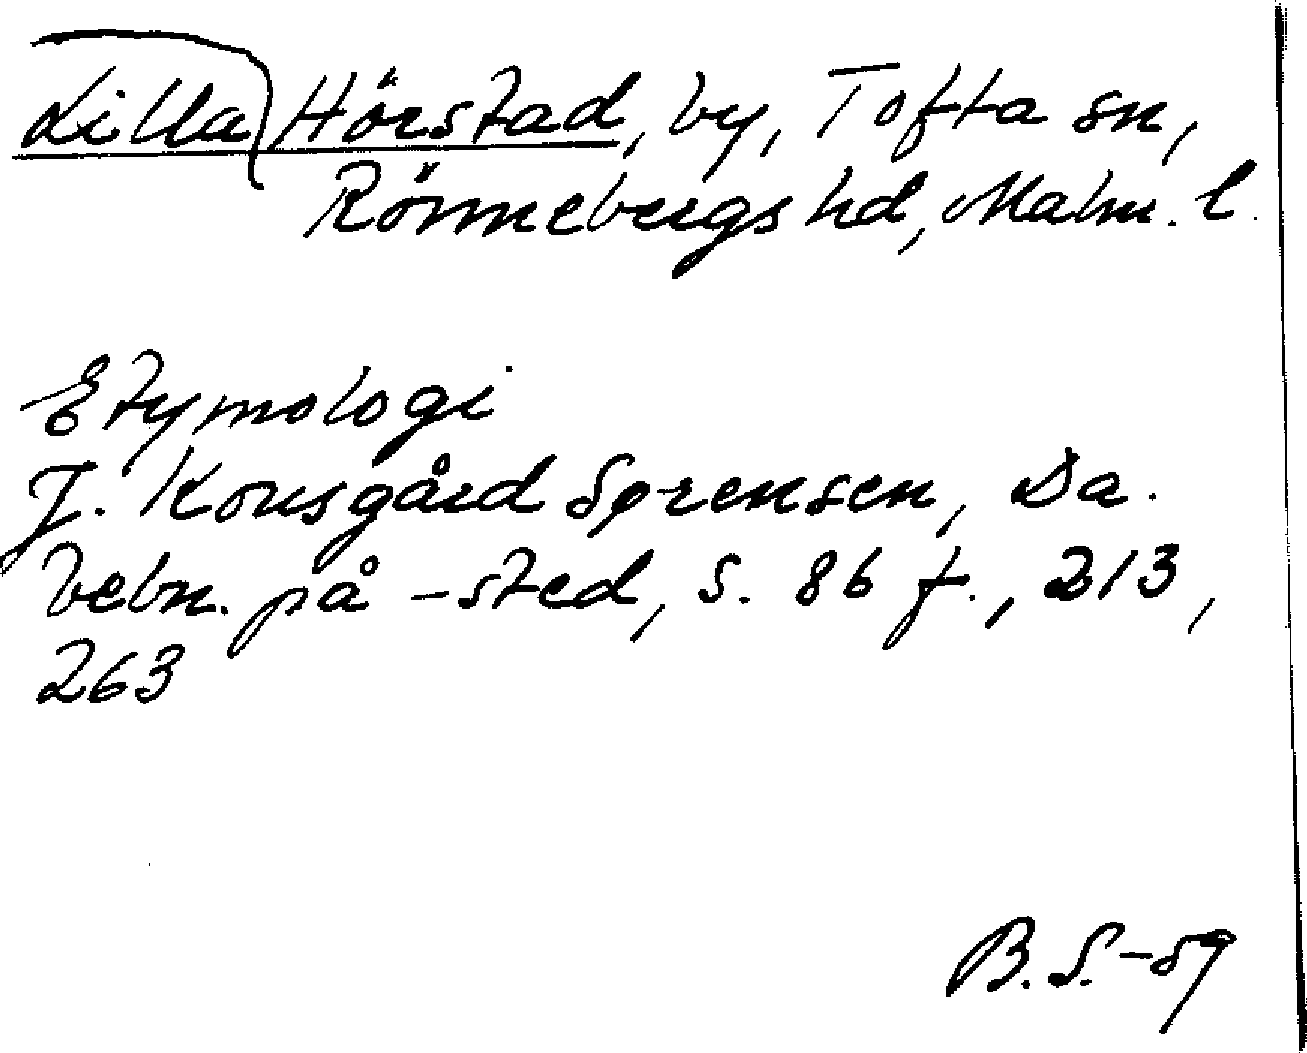 Lilla Hörstad, by, Tofta sn,
Rönnebergs hd, Malm. l.
Etymologi
J. Kousgård Sørensen, Da.
bebn. på -sted, s. 86 f., 213,
263
B.S.-59